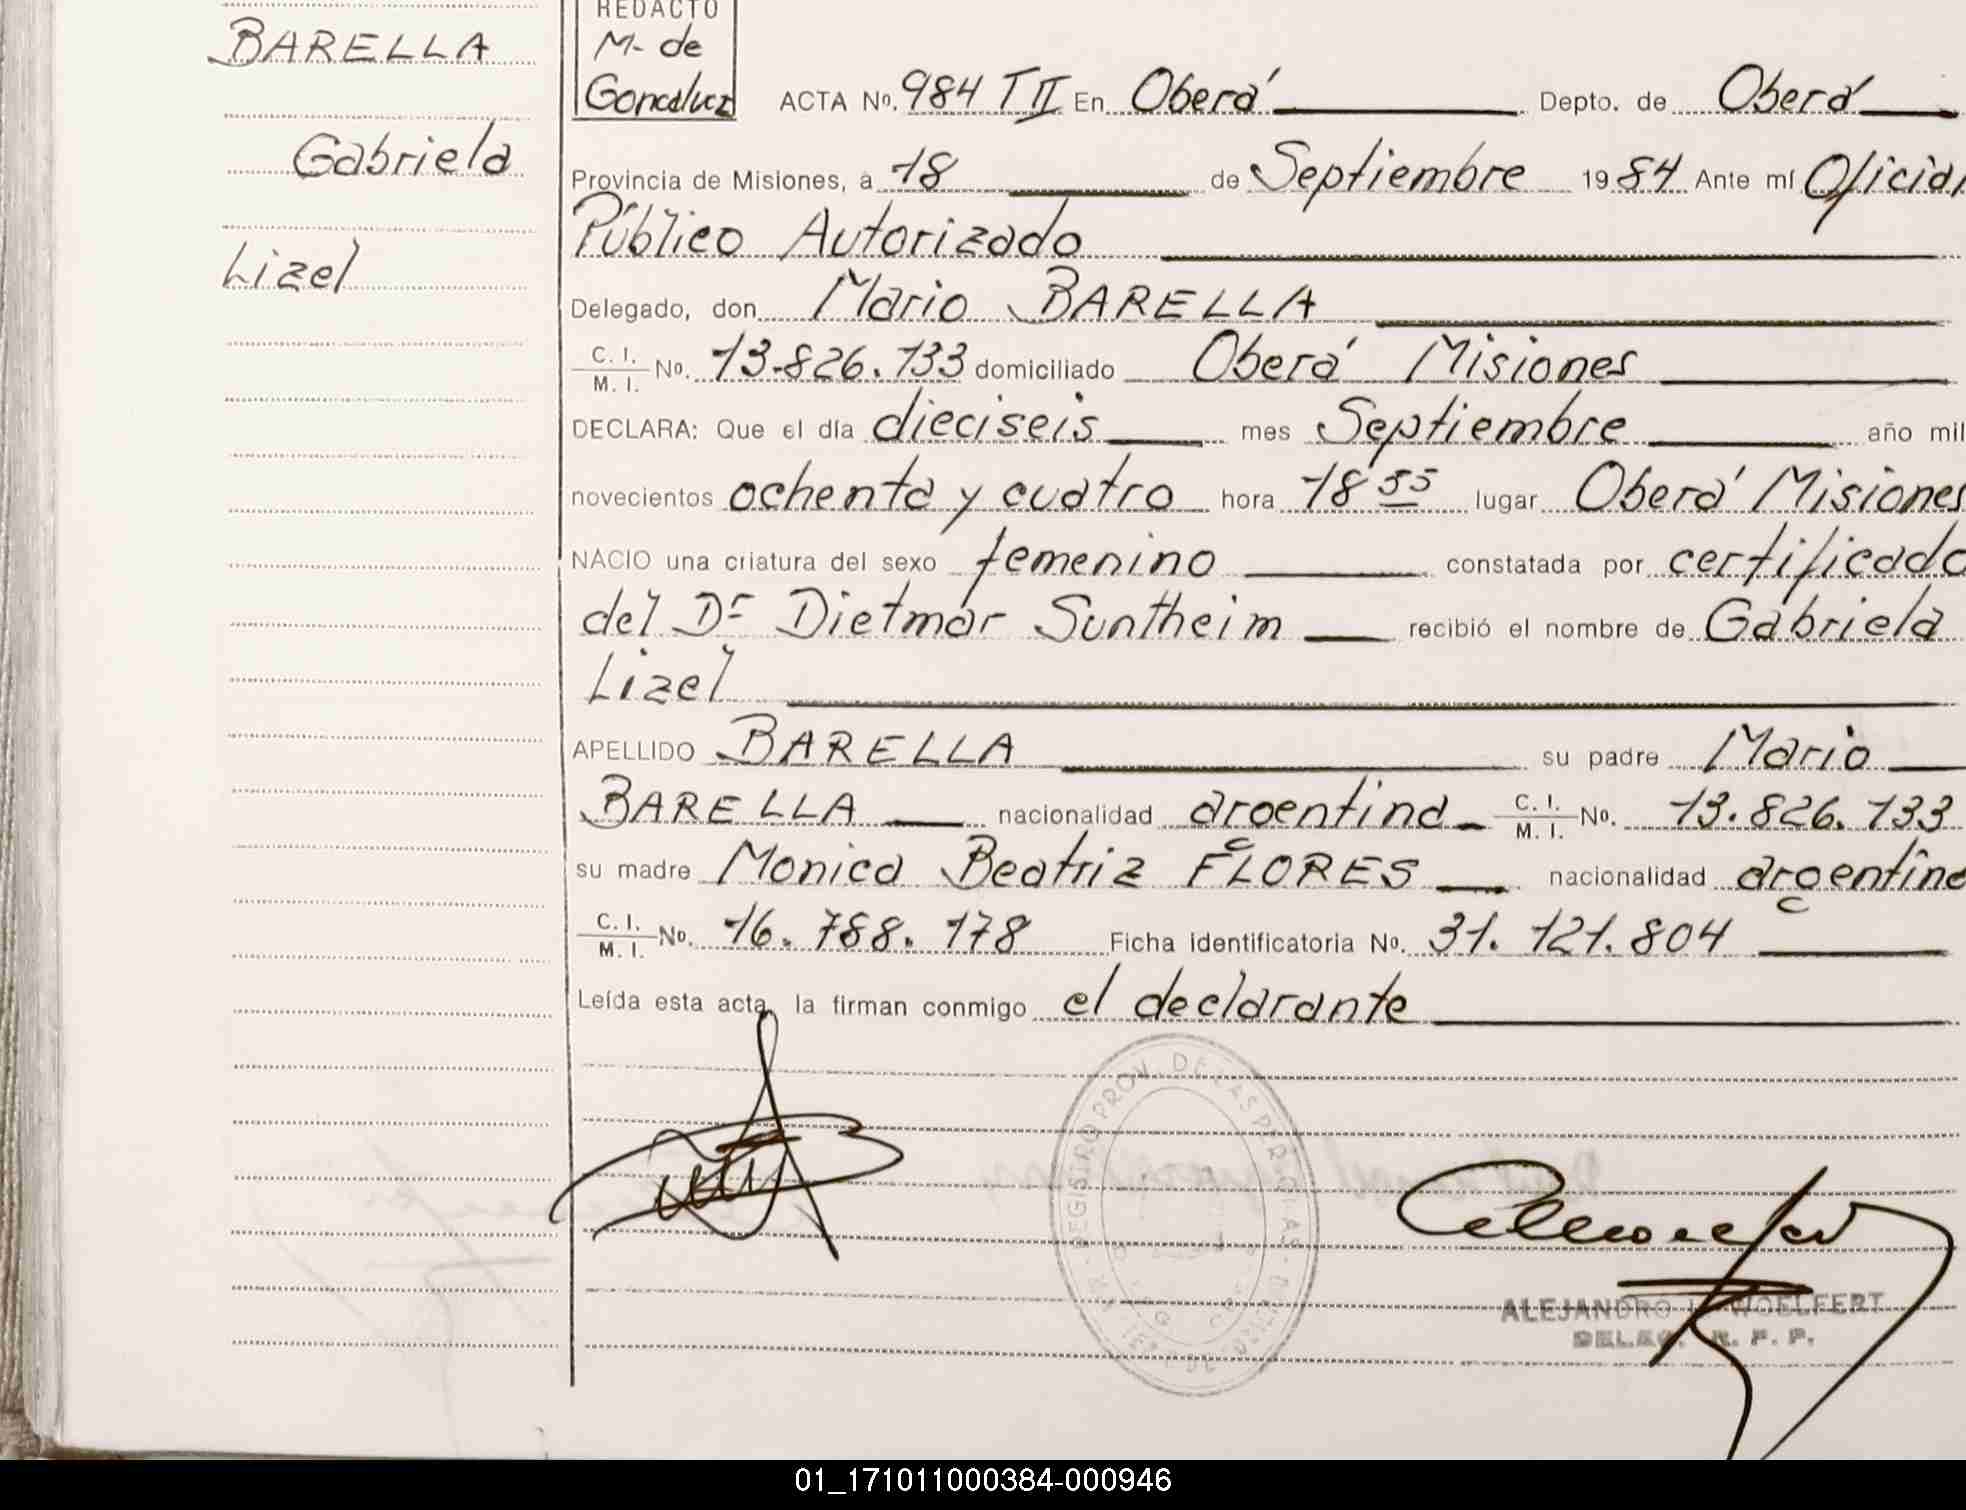 BARELLA
Gabriela
Lizel
REDACTO
M. de
ACTA Nº. 984 T II En Oberá Depto. de Oberá
Provincia de Misiones, a 18 de Septiembre 1984 Ante mí Oficial
Público Autorizado
Delegado, don Mario BARELLA
C. I. / M. I. Nº. 13.826.133 domiciliado Oberá Misiones
DECLARA: Que el día dieciseis mes Septiembre año mil
novecientos ochenta y cuatro hora 18 55 lugar Oberá Misiones
NACIO una criatura del sexo femenino constatada por certificado
del Dr Dietmar Suntheim recibió el nombre de Gabriela
Lizel
APELLIDO BARELLA su padre Mario
BARELLA nacionalidad argentina C. I. / M. I. Nº. 13.826.133
su madre Monica Beatriz FLORES nacionalidad argentina
C. I. / M. I. Nº. 16.788.178 Ficha identificatoria Nº. 31.121.804
Leída esta acta, la firman conmigo el declarante
REGISTRO PROV. DE LAS PERSONAS
ALEJANDRO WOELFERT
DELEG. R. P. P.
01_171011000384-000946